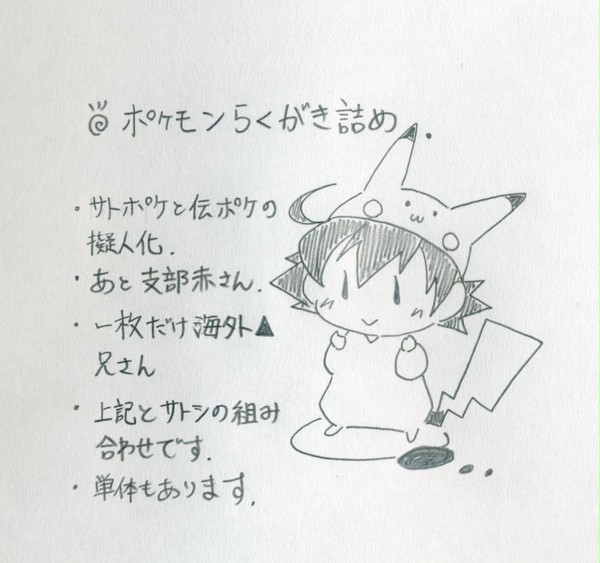 ポケモンらくがき詰め
・サトポケと伝ポケの
擬人化.
・あと支部赤さん.
・一枚だけ海外▲
兄さん
・上記とサトシの組み
合わせです.
・単体もあります.